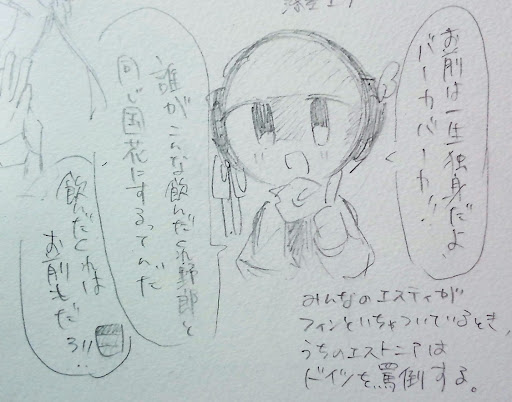 お前は一生独身だよ
バーカバーカ!!
誰がこんな飲んだくれ野郎と
同じ国花にするってんだ
飲んだくれは
お前もだ
ろ!!
みんなのエスティが
フィンといちゃついているとき、
うちのエストニアは
ドイツを罵倒する。